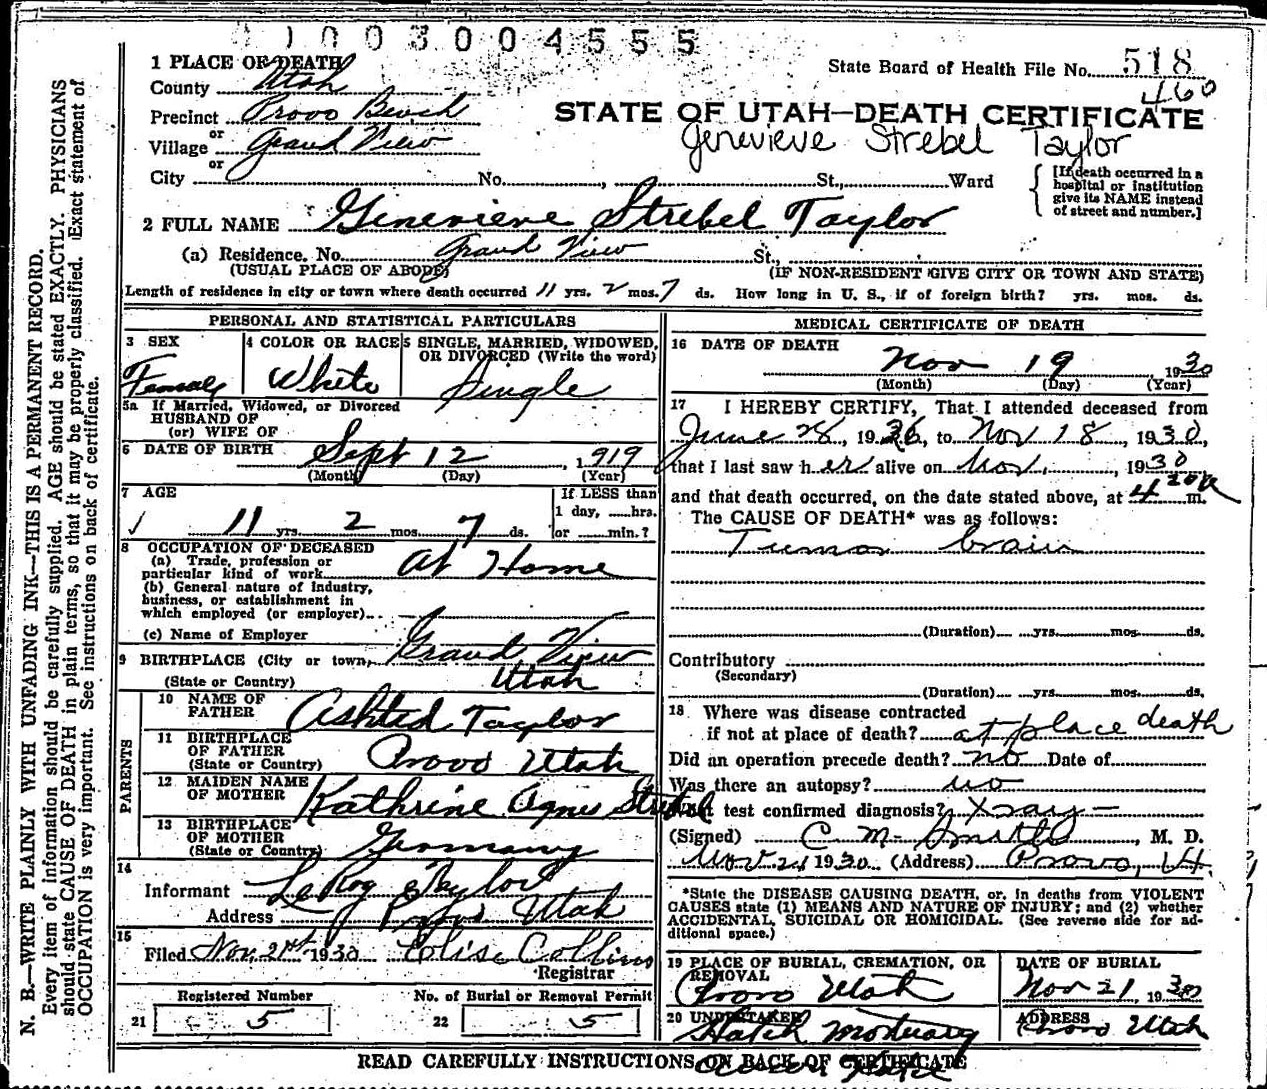 01003004555
1 PLACE OF DEATH
State Board of Health File No. 518
County Utah
460
Precinct Provo Bench
STATE OF UTAH—DEATH CERTIFICATE
or
Village Grand View
Genevieve Strebel Taylor
or
City No. , St., Ward
[If death occurred in a hospital or institution give its NAME instead of street and number.]
2 FULL NAME Genevieve Strebel Taylor
(a) Residence. No. Grand View St.,
(USUAL PLACE OF ABODE) (IF NON-RESIDENT GIVE CITY OR TOWN AND STATE)
Length of residence in city or town where death occurred 11 yrs. 2 mos. 7 ds. How long in U. S., if of foreign birth? yrs. mos. ds.
PERSONAL AND STATISTICAL PARTICULARS
3 SEX
Female
4 COLOR OR RACE
White
5 SINGLE, MARRIED, WIDOWED,
OR DIVORCED (Write the word)
Single
5a If Married, Widowed, or Divorced
HUSBAND OF
(or) WIFE OF
6 DATE OF BIRTH Sept 12, 1919
(Month) (Day) (Year)
7 AGE
11 yrs. 2 mos. 7 ds.
If LESS than
1 day, ......hrs.
or ......min.?
8 OCCUPATION OF DECEASED
(a) Trade, profession or
particular kind of work At Home
(b) General nature of industry,
business, or establishment in
which employed (or employer)
(c) Name of Employer
9 BIRTHPLACE (City or town, Grand View
(State or Country) Utah
PARENTS
10 NAME OF
FATHER Ashted Taylor
11 BIRTHPLACE
OF FATHER
(State or Country) Provo Utah
12 MAIDEN NAME
OF MOTHER Kathrine Agnes Strebel
13 BIRTHPLACE
OF MOTHER
(State or Country) Germany
14
Informant LeRoy Taylor
Address Provo Utah
15
Filed Nov. 21st 1930 Elise Collins
Registrar
Registered Number
21 5
No. of Burial or Removal Permit
22 5
MEDICAL CERTIFICATE OF DEATH
16 DATE OF DEATH
Nov 19, 1930
(Month) (Day) (Year)
17 I HEREBY CERTIFY, That I attended deceased from
June 28, 19 , to Nov 18, 1930,
that I last saw her alive on Nov., 1930
and that death occurred, on the date stated above, at 4 20 a m.
The CAUSE OF DEATH* was as follows:
Tumor brain
(Duration) yrs. mos. ds.
Contributory
(Secondary)
(Duration) yrs. mos. ds.
18 Where was disease contracted
if not at place of death? at place death
Did an operation precede death? no Date of
Was there an autopsy? no
What test confirmed diagnosis? Xray—
(Signed) C. M. Smith, M. D.
Nov 21 1930 (Address) Provo, Ut.
*State the DISEASE CAUSING DEATH, or, in deaths from VIOLENT
CAUSES state (1) MEANS AND NATURE OF INJURY; and (2) whether
ACCIDENTAL, SUICIDAL OR HOMICIDAL. (See reverse side for ad-
ditional space.)
19 PLACE OF BURIAL, CREMATION, OR
REMOVAL
Provo Utah
DATE OF BURIAL
Nov 21, 1930
20 UNDERTAKER
Hatch Mortuary
ADDRESS
Provo Utah
READ CAREFULLY INSTRUCTIONS ON BACK OF CERTIFICATE
N. B.—WRITE PLAINLY WITH UNFADING INK—THIS IS A PERMANENT RECORD.
Every item of information should be carefully supplied. AGE should be stated EXACTLY. PHYSICIANS
should state CAUSE OF DEATH in plain terms, so that it may be properly classified. Exact statement of
OCCUPATION is very important. See instructions on back of certificate.